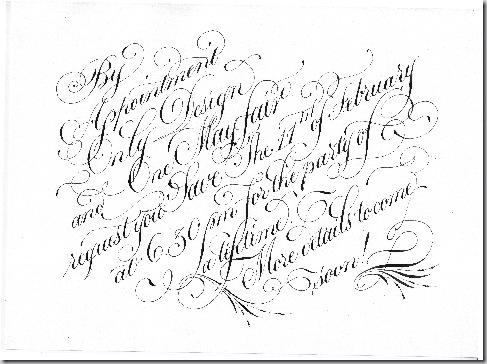 By
Appointment
Only Design
and One Mayfair
request you Save The 11th of February
at 6.30 pm for the party of
a lifetime
More details to come
soon!